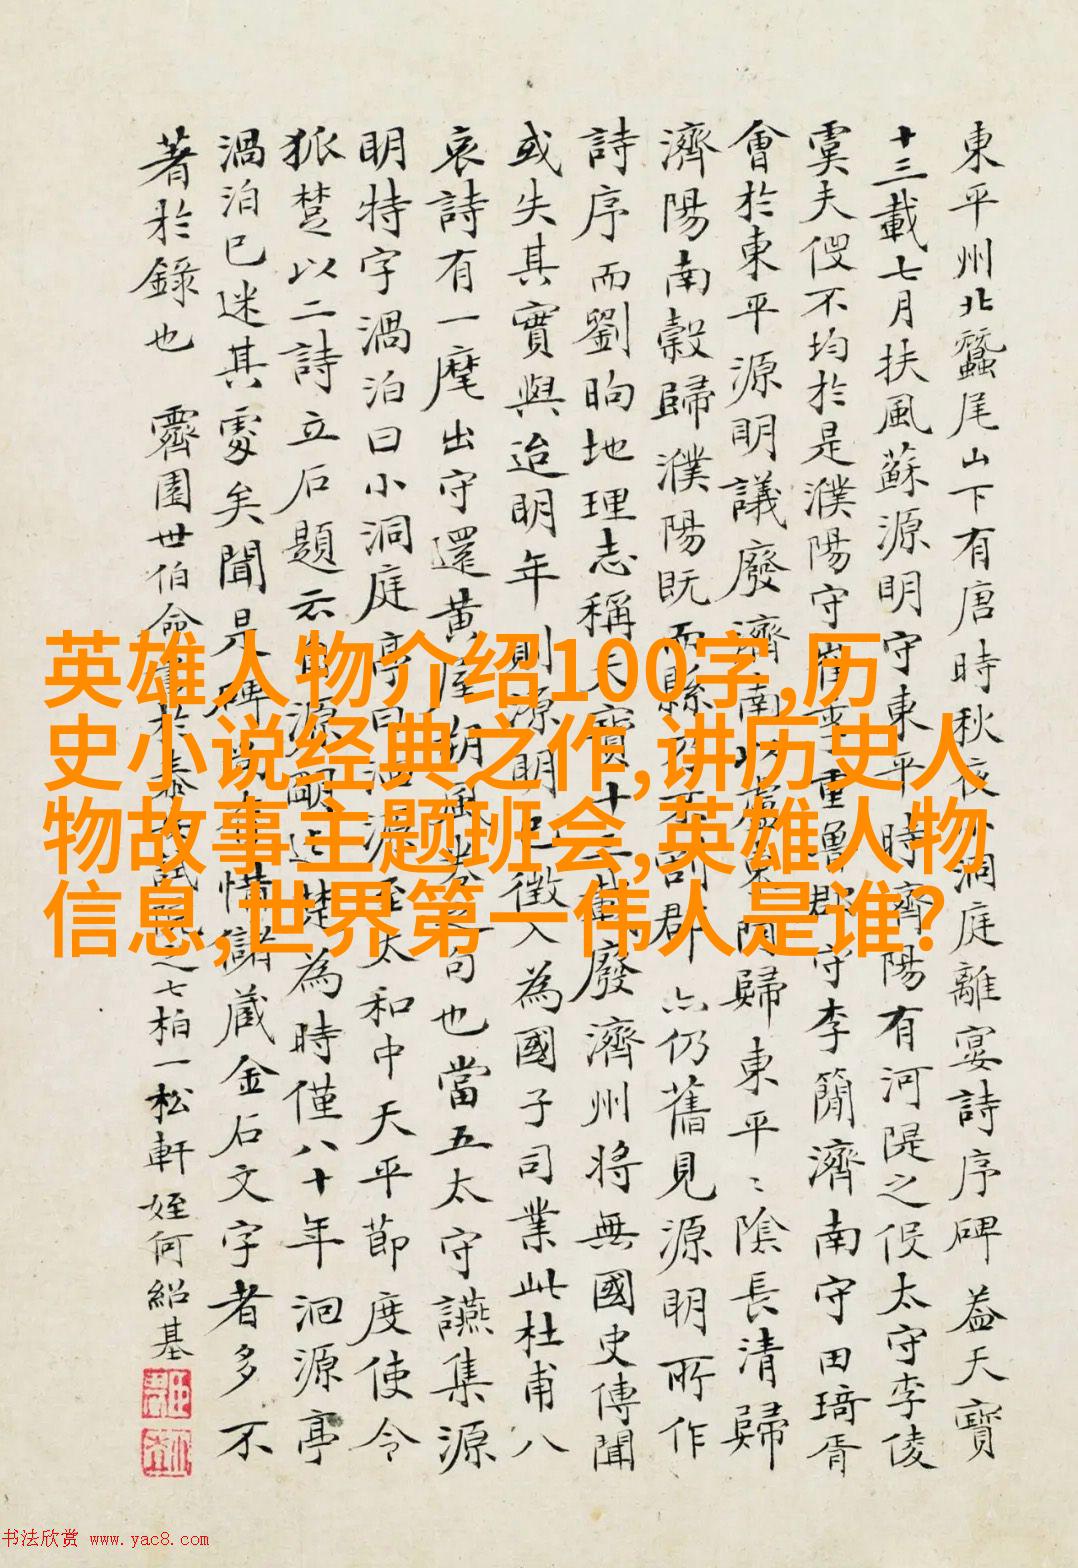 東平州北蠶尾山下有唐時秋夜小洞庭離宴詩序碑蓋天寶
十三載七月扶風蘇源明守東平時濟陽有河隄之役太守李倰
以役不均於是濮陽守崔季重魯郡守李簡濟南守田琦胥
會於東平源明議廢濟南歸東平陰長清歸
濟陽南穀歸濮陽既而縣郡六仍舊見源明所作
詩序而劉昫地理志稱天寶十三載廢濟州將無國史傳聞
或失其實與迨明年則源明已徵入為國子司業此杜甫八
哀詩有一麾出守還黃屋朔風卷之句也當五太守讌集源
明特字渦泊曰小洞庭亭曰洄源至太和中天平節度使令
狐楚以二詩立石題云自源明迄楚為時僅八十年洄源亭
渦泊已迷其處矣聞是碑惜儲藏金石文字者多不
著於錄也 霽園世伯命書於泰試院之七柏一松軒姪何紹基
英雄人物介绍100字,历
史小说经典之作,讲历史人
物故事主题班会,英雄人物
信息,世界第一伟人是谁?
书法欣赏 www.yac8.com